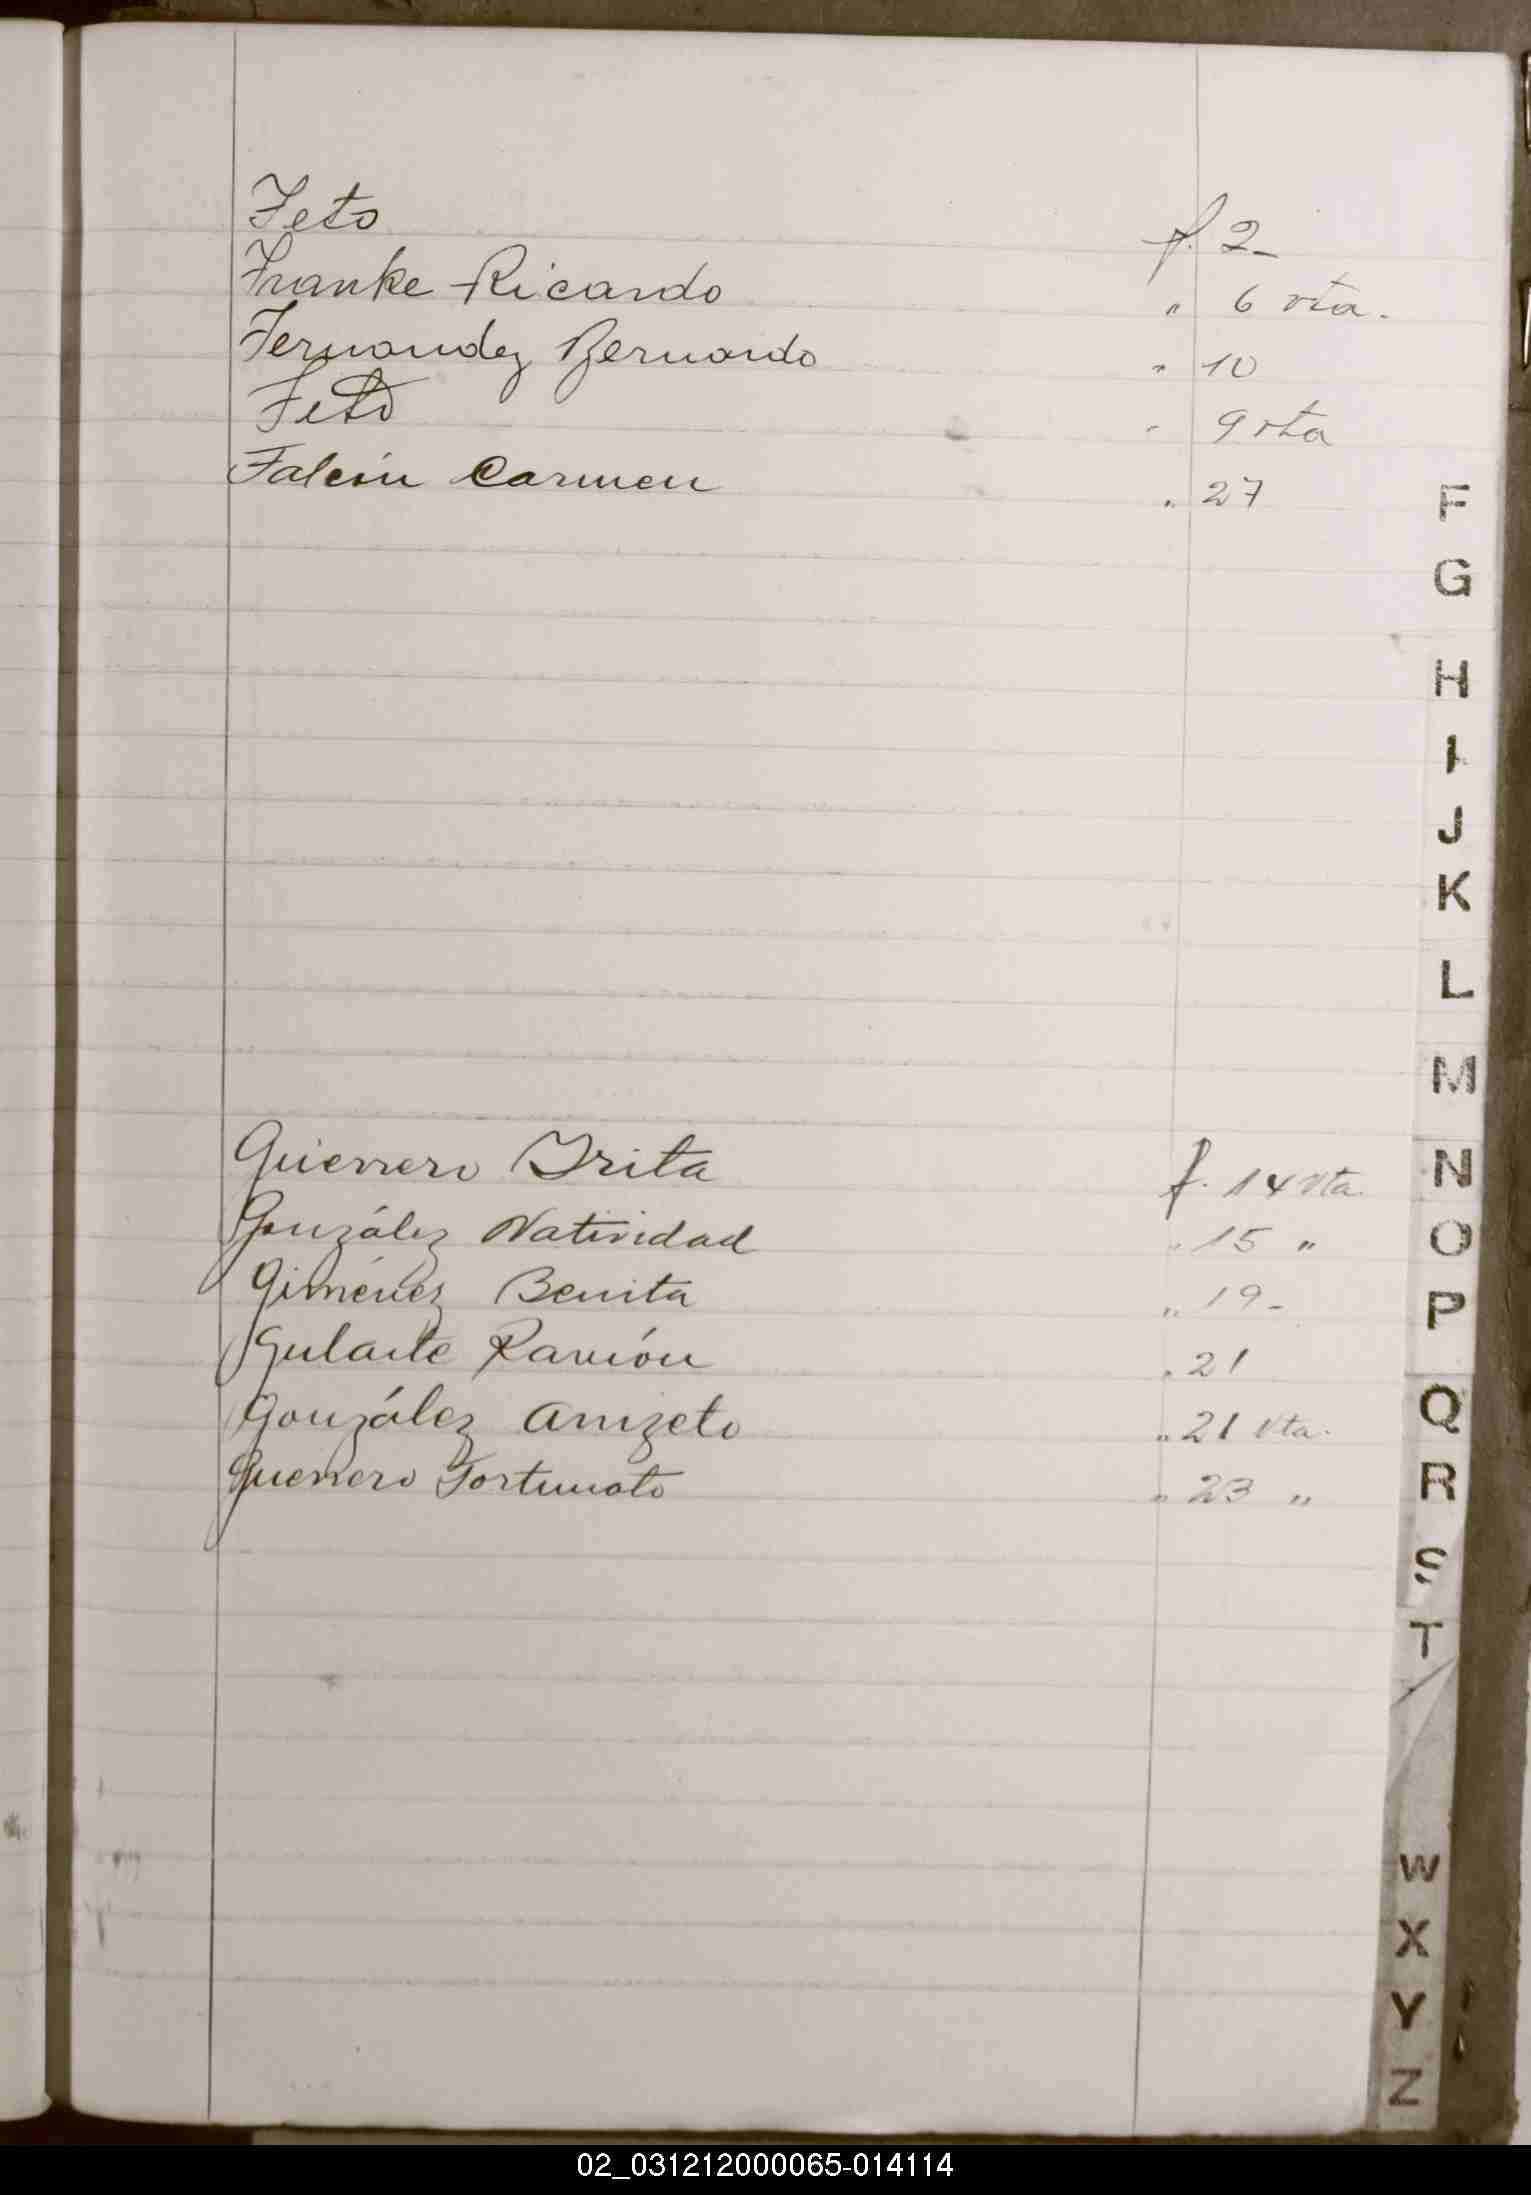 Feto f. 2-
Franke Ricardo " 6 vta.
Fernandez Bernardo " 10
Feto " 9 vta
Falcón Carmen " 27
F
G
H
I
J
K
L
M
Guerrero Irita f. 14 vta.
N
González Natividad " 15 "
O
Giménez Benita " 19-
P
Gularte Ramón " 21
Q
González Anizeto " 21 vta.
R
Guerrero Fortunato " 23 "
S
T
W
X
Y
Z
02_031212000065-014114